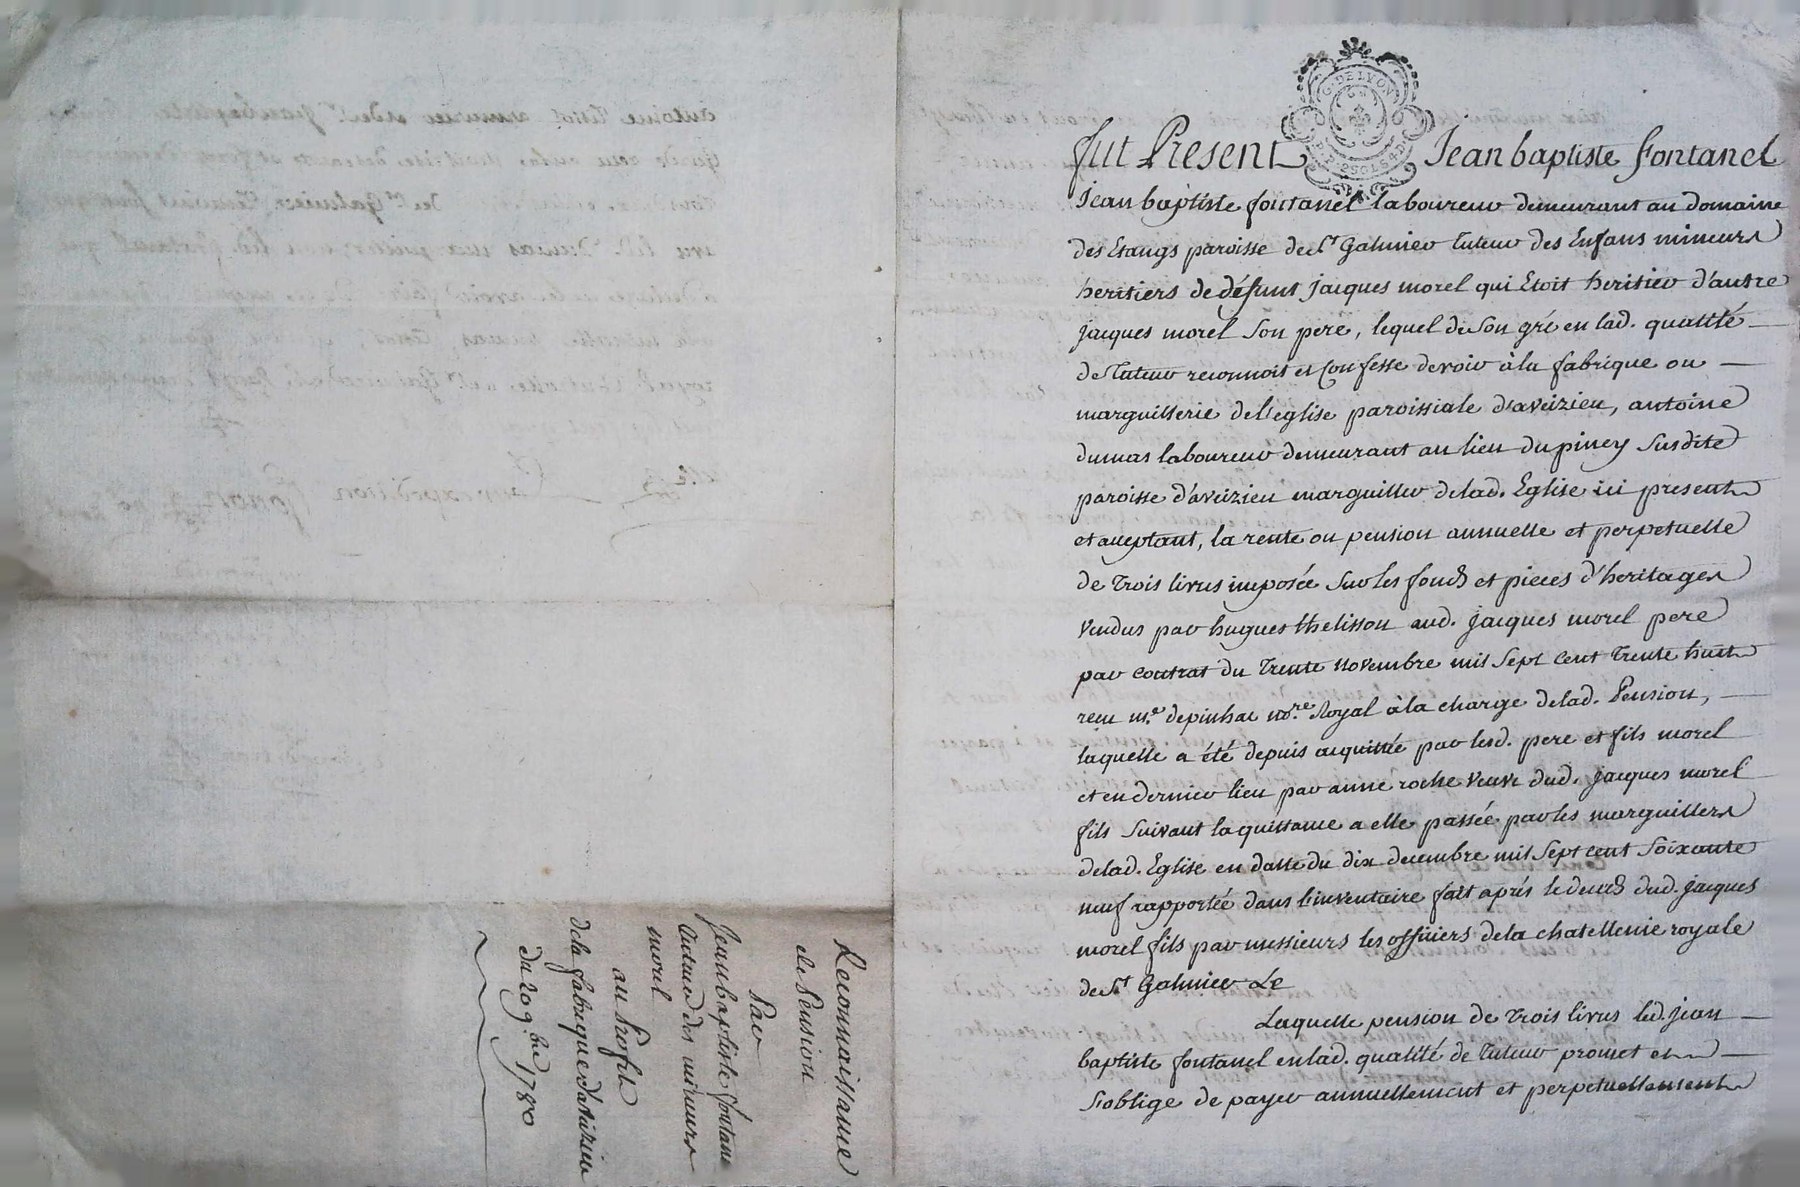 G. DE LYON
fut Present Jean baptiste fontanel
Jean baptiste fontanel laboureur demeurant au domaine
des Etangs paroisse de St Galmier tuteur des Enfans mineurs
heritiers de défunt jacques morel qui Etoit heritier d'autre
jacques morel son pere, lequel de son gré en lad. qualité
de tuteur reconnoit et Confesse devoir à la fabrique ou
marguillerie de l'eglise paroissiale d'aveizieu, antoine
dumas laboureur demeurant au lieu du piney susdite
paroisse d'aveizieu marguillier delad. Eglise ici present
et acceptant, la rente ou pension annuelle et perpetuelle
de trois livres imposée sur les fonds et pieces d'heritages
vendus par hugues thelisson aud. jacques morel pere
par contrat du trente novembre mil sept cent trente huit
recu me. depinhac nore. Royal à la charge delad. Pension,
laquelle a été depuis acquittée par lesd. pere et fils morel
et en dernier lieu par anne roche veuve dud. jacques morel
fils suivant la quittance a elle passée par les marguilliers
delad. Eglise en datte du dix decembre mil sept cent soixante
neuf rapportée dans l'inventaire fait aprés le decés dud. jacques
morel fils par messieurs les officiers de la chatellenie royale
de St Galmier Le
Laquelle pension de trois livres led. jean
baptiste fontanel en lad. qualité de tuteur promet et
s'oblige de payer annuellement et perpetuellement
Reconnaissance
de Pension
Par
Jean baptiste fontanel
tuteur des mineurs
morel
au Profit
de la fabrique d'aveizieu
du 20 9.bre 1780